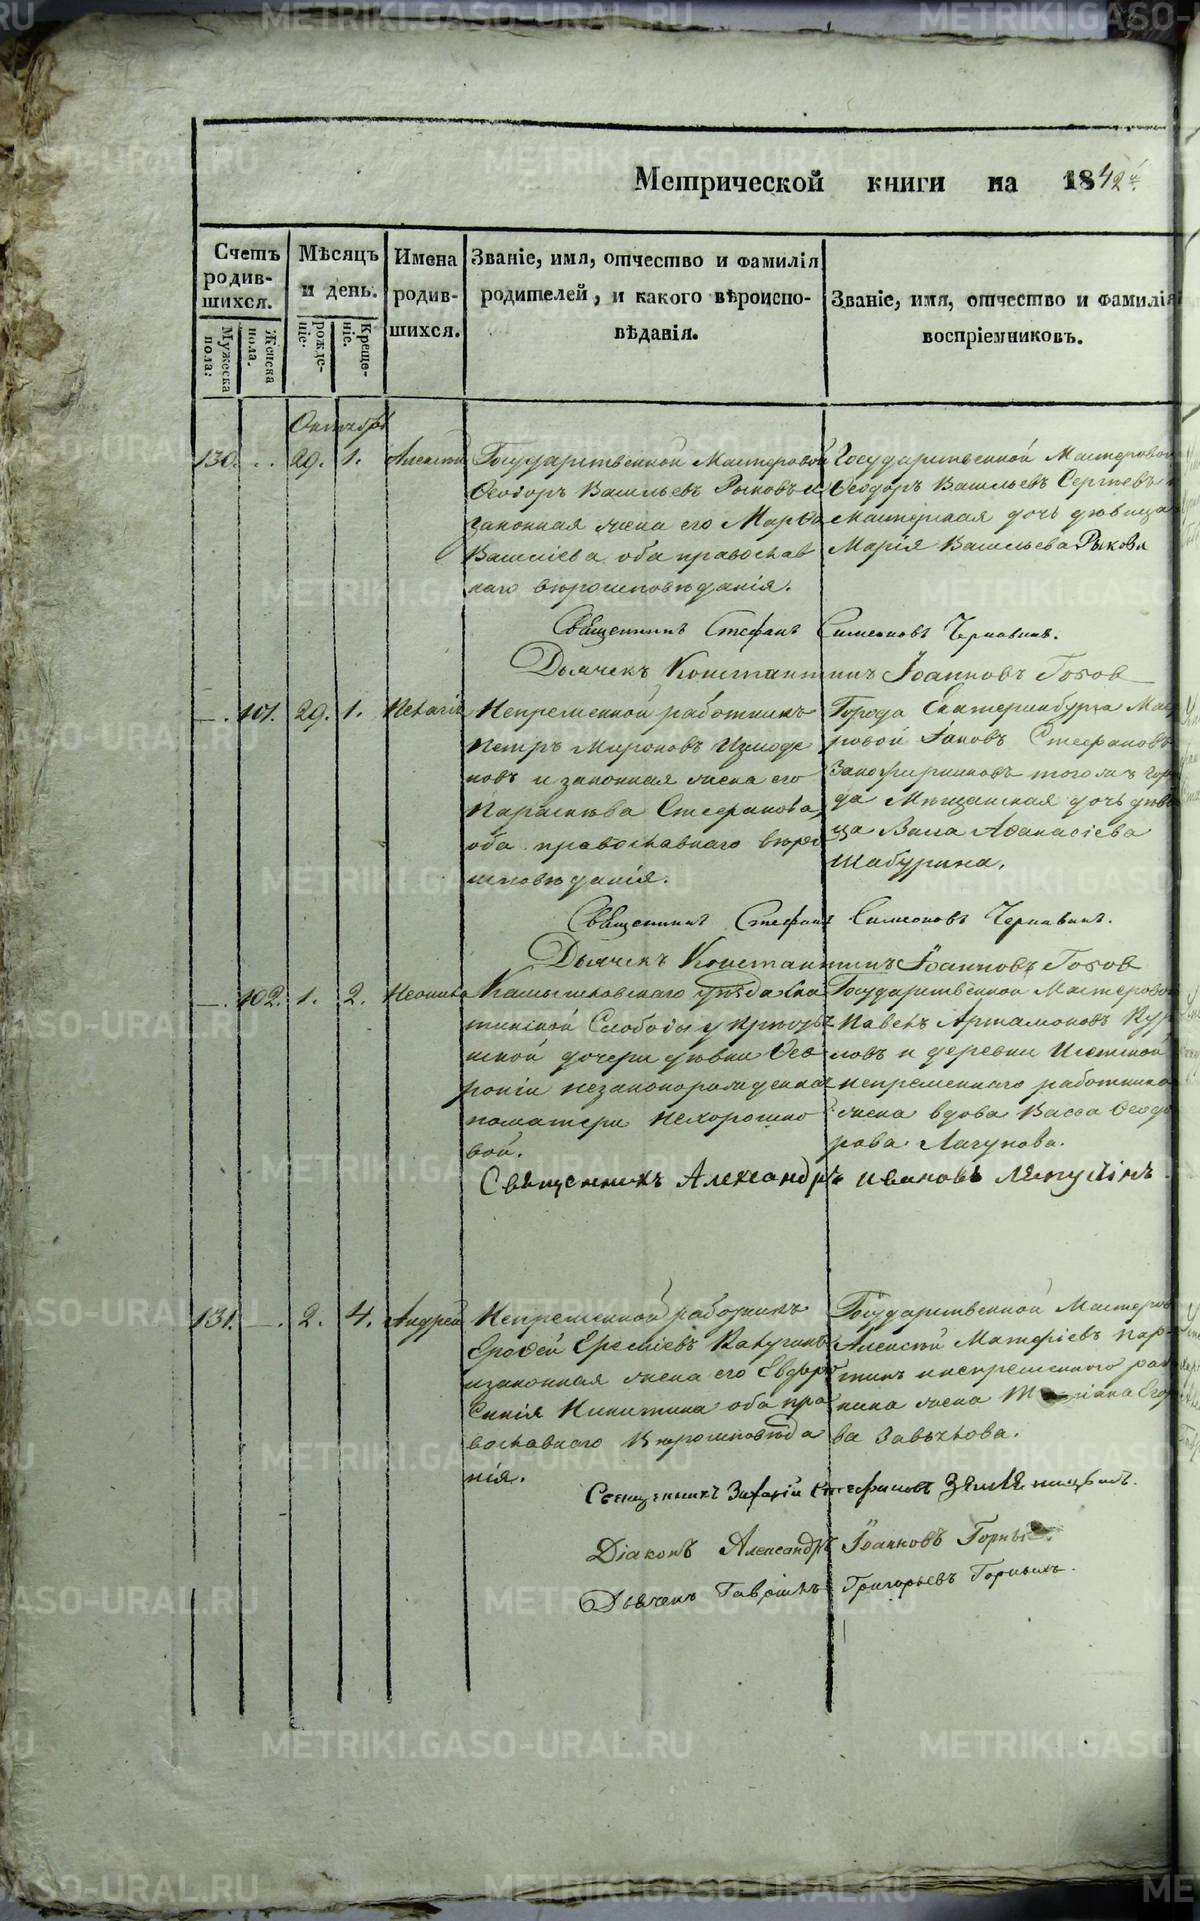 Метрической книги на 1842й.
Счетъ родив-шихся.
Мужеска пола:
Женска пола.
Мѣсяцъ и день.
рожде-ніе.
Креще-ніе.
Имена родив-шихся.
Званіе, имя, отчество и фамилія
родителей, и какого вѣроиспо-
вѣданія.
Званіе, имя, отчество и фамилія
воспріемниковъ.
Октябрь
130. 29. 1. Алексѣй
Государственной Мастеровой
Ѳеодоръ Васильевъ Рыковъ и
законная жена его Марѳа
Василіева оба православ
наго вѣроисповѣданія.
Государственной Мастеровой
Ѳеодоръ Васильевъ Сергѣевъ и
Мастерская дочь дѣвица
Марія Васильева Рыкова
Священникъ Стефанъ Симеоновъ Чернавинъ.
Дьячекъ Константинъ Іоанновъ
101. 29. 1. Пелагія
Непременной работникъ
Петръ Мироновъ Измоде
новъ и законная жена его
Параскѣва Стефанова,
оба православнаго вѣро
исповѣданія.
Города Екатеринбурга Мас
ровой Іаковъ Стефановъ
тогожъ горо
да Мѣщанская дочь дѣви
ца Аѳанасіева
Шабурина.
Священникъ Стефанъ Симеоновъ Чернавинъ.
Дьячекъ Константинъ Іоанновъ
102. 1. 2. Неонила
Камышловскаго уѣзда
Слободы у
ской дочери дѣвки Ѳев
роніи незаконорожденна
поматери Нехорошко
вой.
Государственной Мастеровой
Павелъ Артамоновъ
ловъ и деревни Исетской
непременнаго работника
жена вдова Васса Ѳеодо
рова Лагунова.
Священникъ Александръ Ивановъ
131. 2. 4. Андрей
Непременной работникъ
Ерофей Еремѣевъ Калугинъ
изаконная жена его Евдо
Никитина оба пра
вославнаго Вѣроисповѣда
нія.
Государственной Мастеров
Алексѣй Матфіевъ Пар-
тинъ инепременного раб
ника жена Егор
ва
Священникъ Захарій Стефановъ Земляницынъ.
Діаконъ Александръ Іоанновъ
Дьячекъ Гавріилъ Григорьевъ Горныхъ.
METRIKI.GASO-URAL.RU